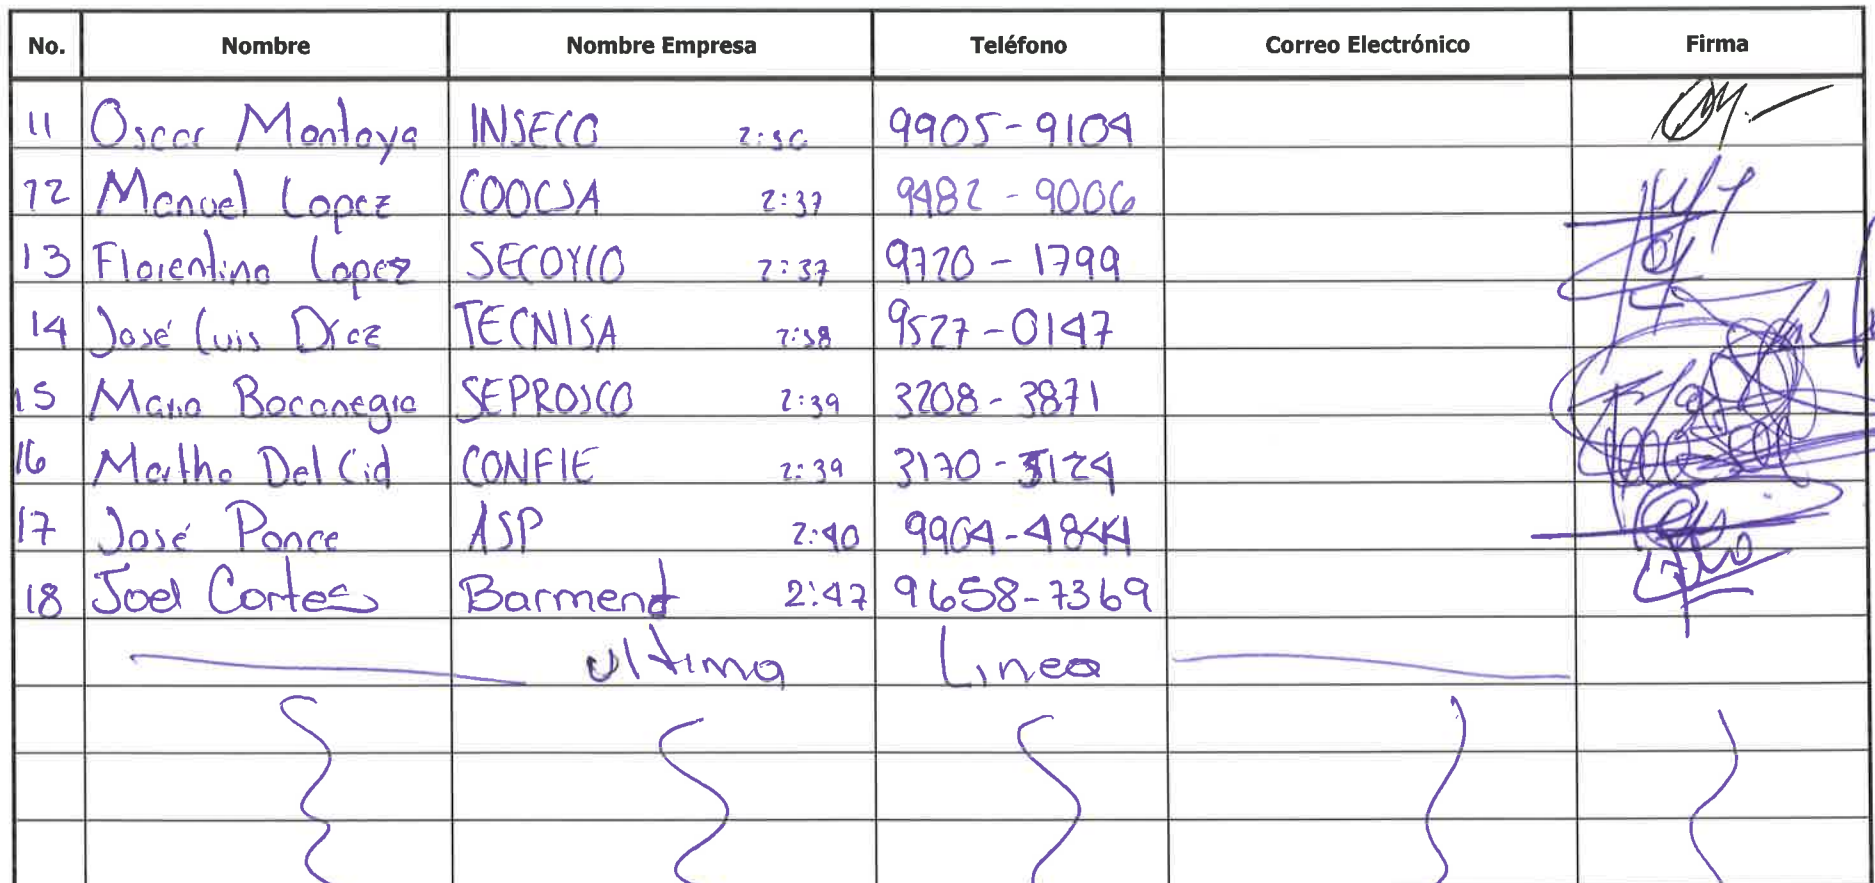 No. Nombre Nombre Empresa Teléfono Correo Electrónico Firma
11 Oscar Montoya INSECO 2:36 9905-9104
12 Manuel Lopez COOCSA 2:37 9482-9006
13 Florentino Lopez SECOYCO 2:37 9720-1799
14 José Luis Díaz TECNISA 2:38 9527-0147
15 Mario Bocanegra SEPROSCO 2:39 3208-3871
16 Martha Del Cid CONFIE 2:39 3170-3124
17 José Ponce ASP 2:40 9904-4844
18 Joel Cortes Barmend 2:47 9658-7369
ultima Linea